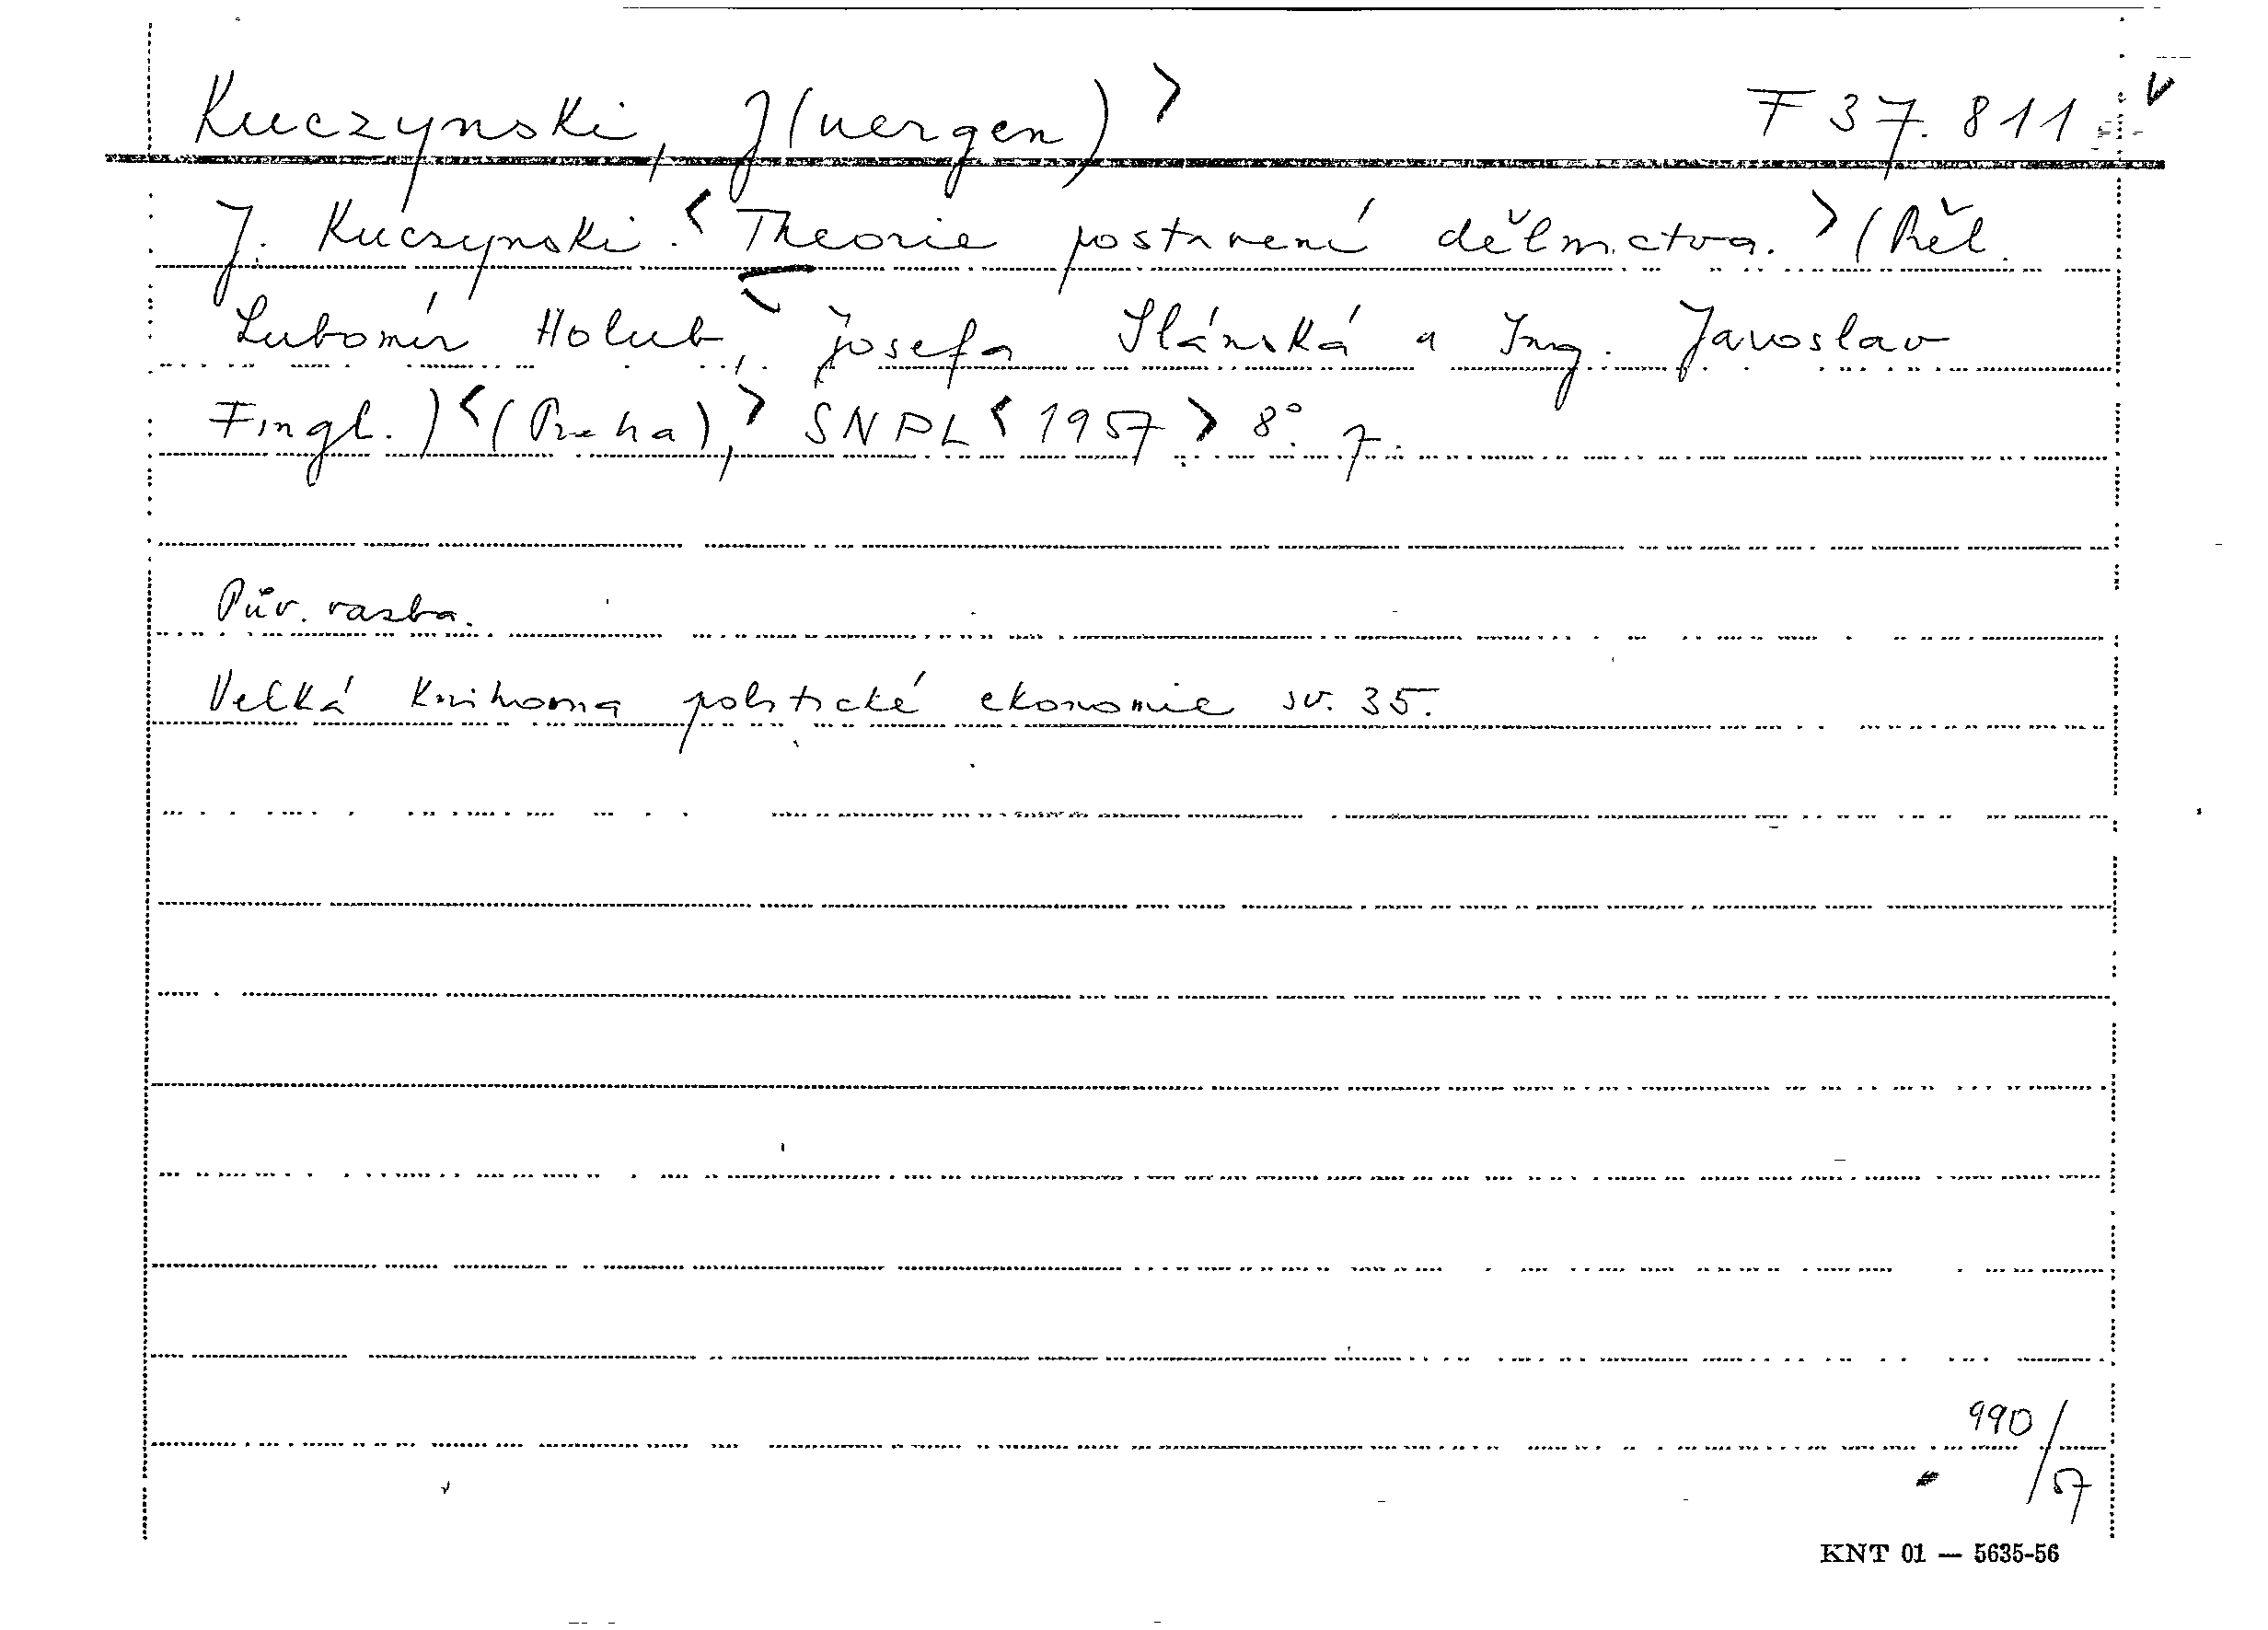 Kuczynski, J(uergen)> F 37.811 v
J. Kuczynski. <Theorie postavení dělnictva.> (Přel.
Lubomír Holub, Josefa Slánská a Ing. Jaroslav
Fingl.) <(Praha),> SNPL <1957> 8°. 7.
Pův. vazba.
Velká knihovna politické ekonomie sv. 35.
990/57
KNT 01 — 5635-56